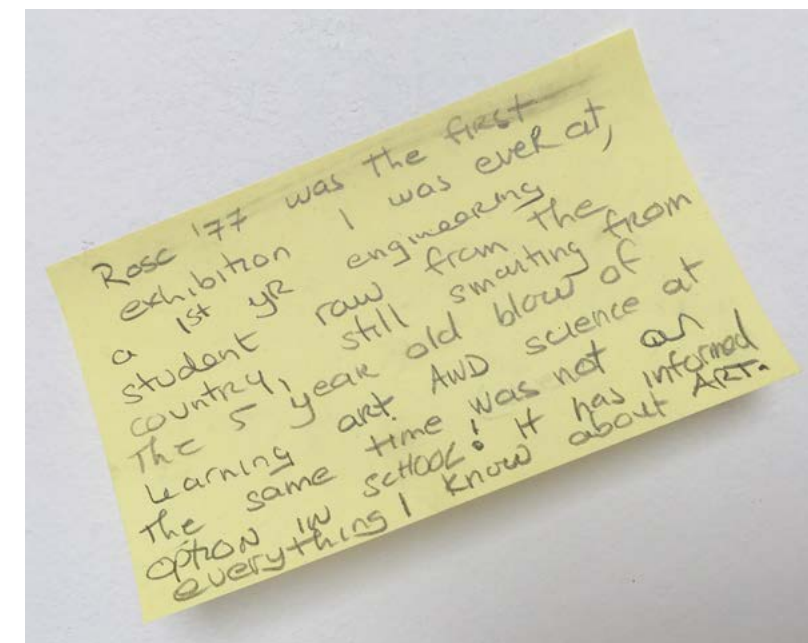 Rosc '77 was the first
exhibition I was ever at,
a 1st yr engineering
student raw from the
country, still smarting from
The 5 year old blow of
learning art AND science at
the same time was not an
OPTION IN SCHOOL! It has informed
everything I know about ART.